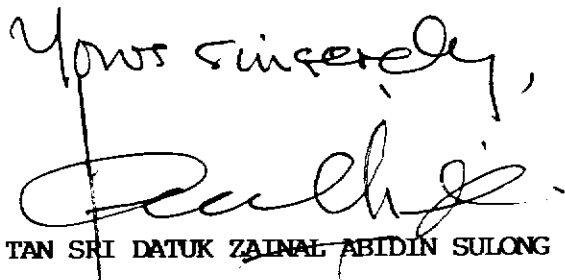 Yours sincerely,
TAN SRI DATUK ZAINAL ABIDIN SULONG